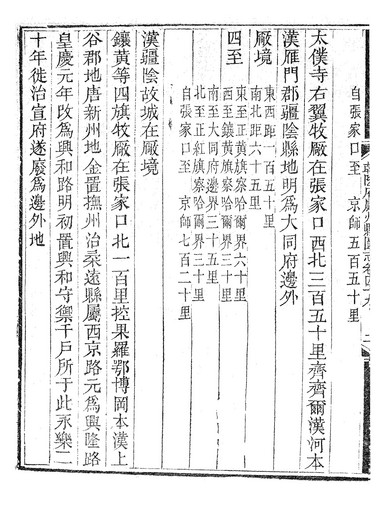 自張家口至　京師五百五十里
太僕寺右翼牧厰在張家口西北三百五十里齊齊爾漢河本
漢雁門郡彊陰縣地明爲大同府邊外
厰境
東西距一百五十里
南北距六十五里
四至
東至正黃旗察哈爾界六十里
西至鑲黃旗察哈爾界三十里
南至大同府邊界三十五里
北至正紅旗察哈爾界三十里
自張家口至　京師七百二十里
漢彊陰故城在厰境
鑲黃等四旗牧厰在張家口北一百里控果羅鄂博岡本漢上
谷郡地唐新州地金置撫州治柔遠縣屬西京路元爲興隆路
皇慶元年改爲興和路明初置興和守禦千戶所于此永樂二
十年徙治宣府遂廢爲邊外地